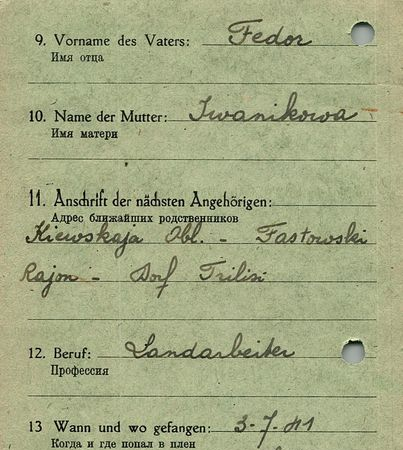 9. Vorname des Vaters: Fedor
Имя отца
10. Name der Mutter: Iwanikowa
Имя матери
11. Anschrift der nächsten Angehörigen:
Адрес ближайших родственников
Kiewskaja Obl. - Fastowski
Rajon - Dorf Trilisi
12. Beruf: Landarbeiter
Профессия
13 Wann und wo gefangen: 3-7-41
Когда и где попал в плен